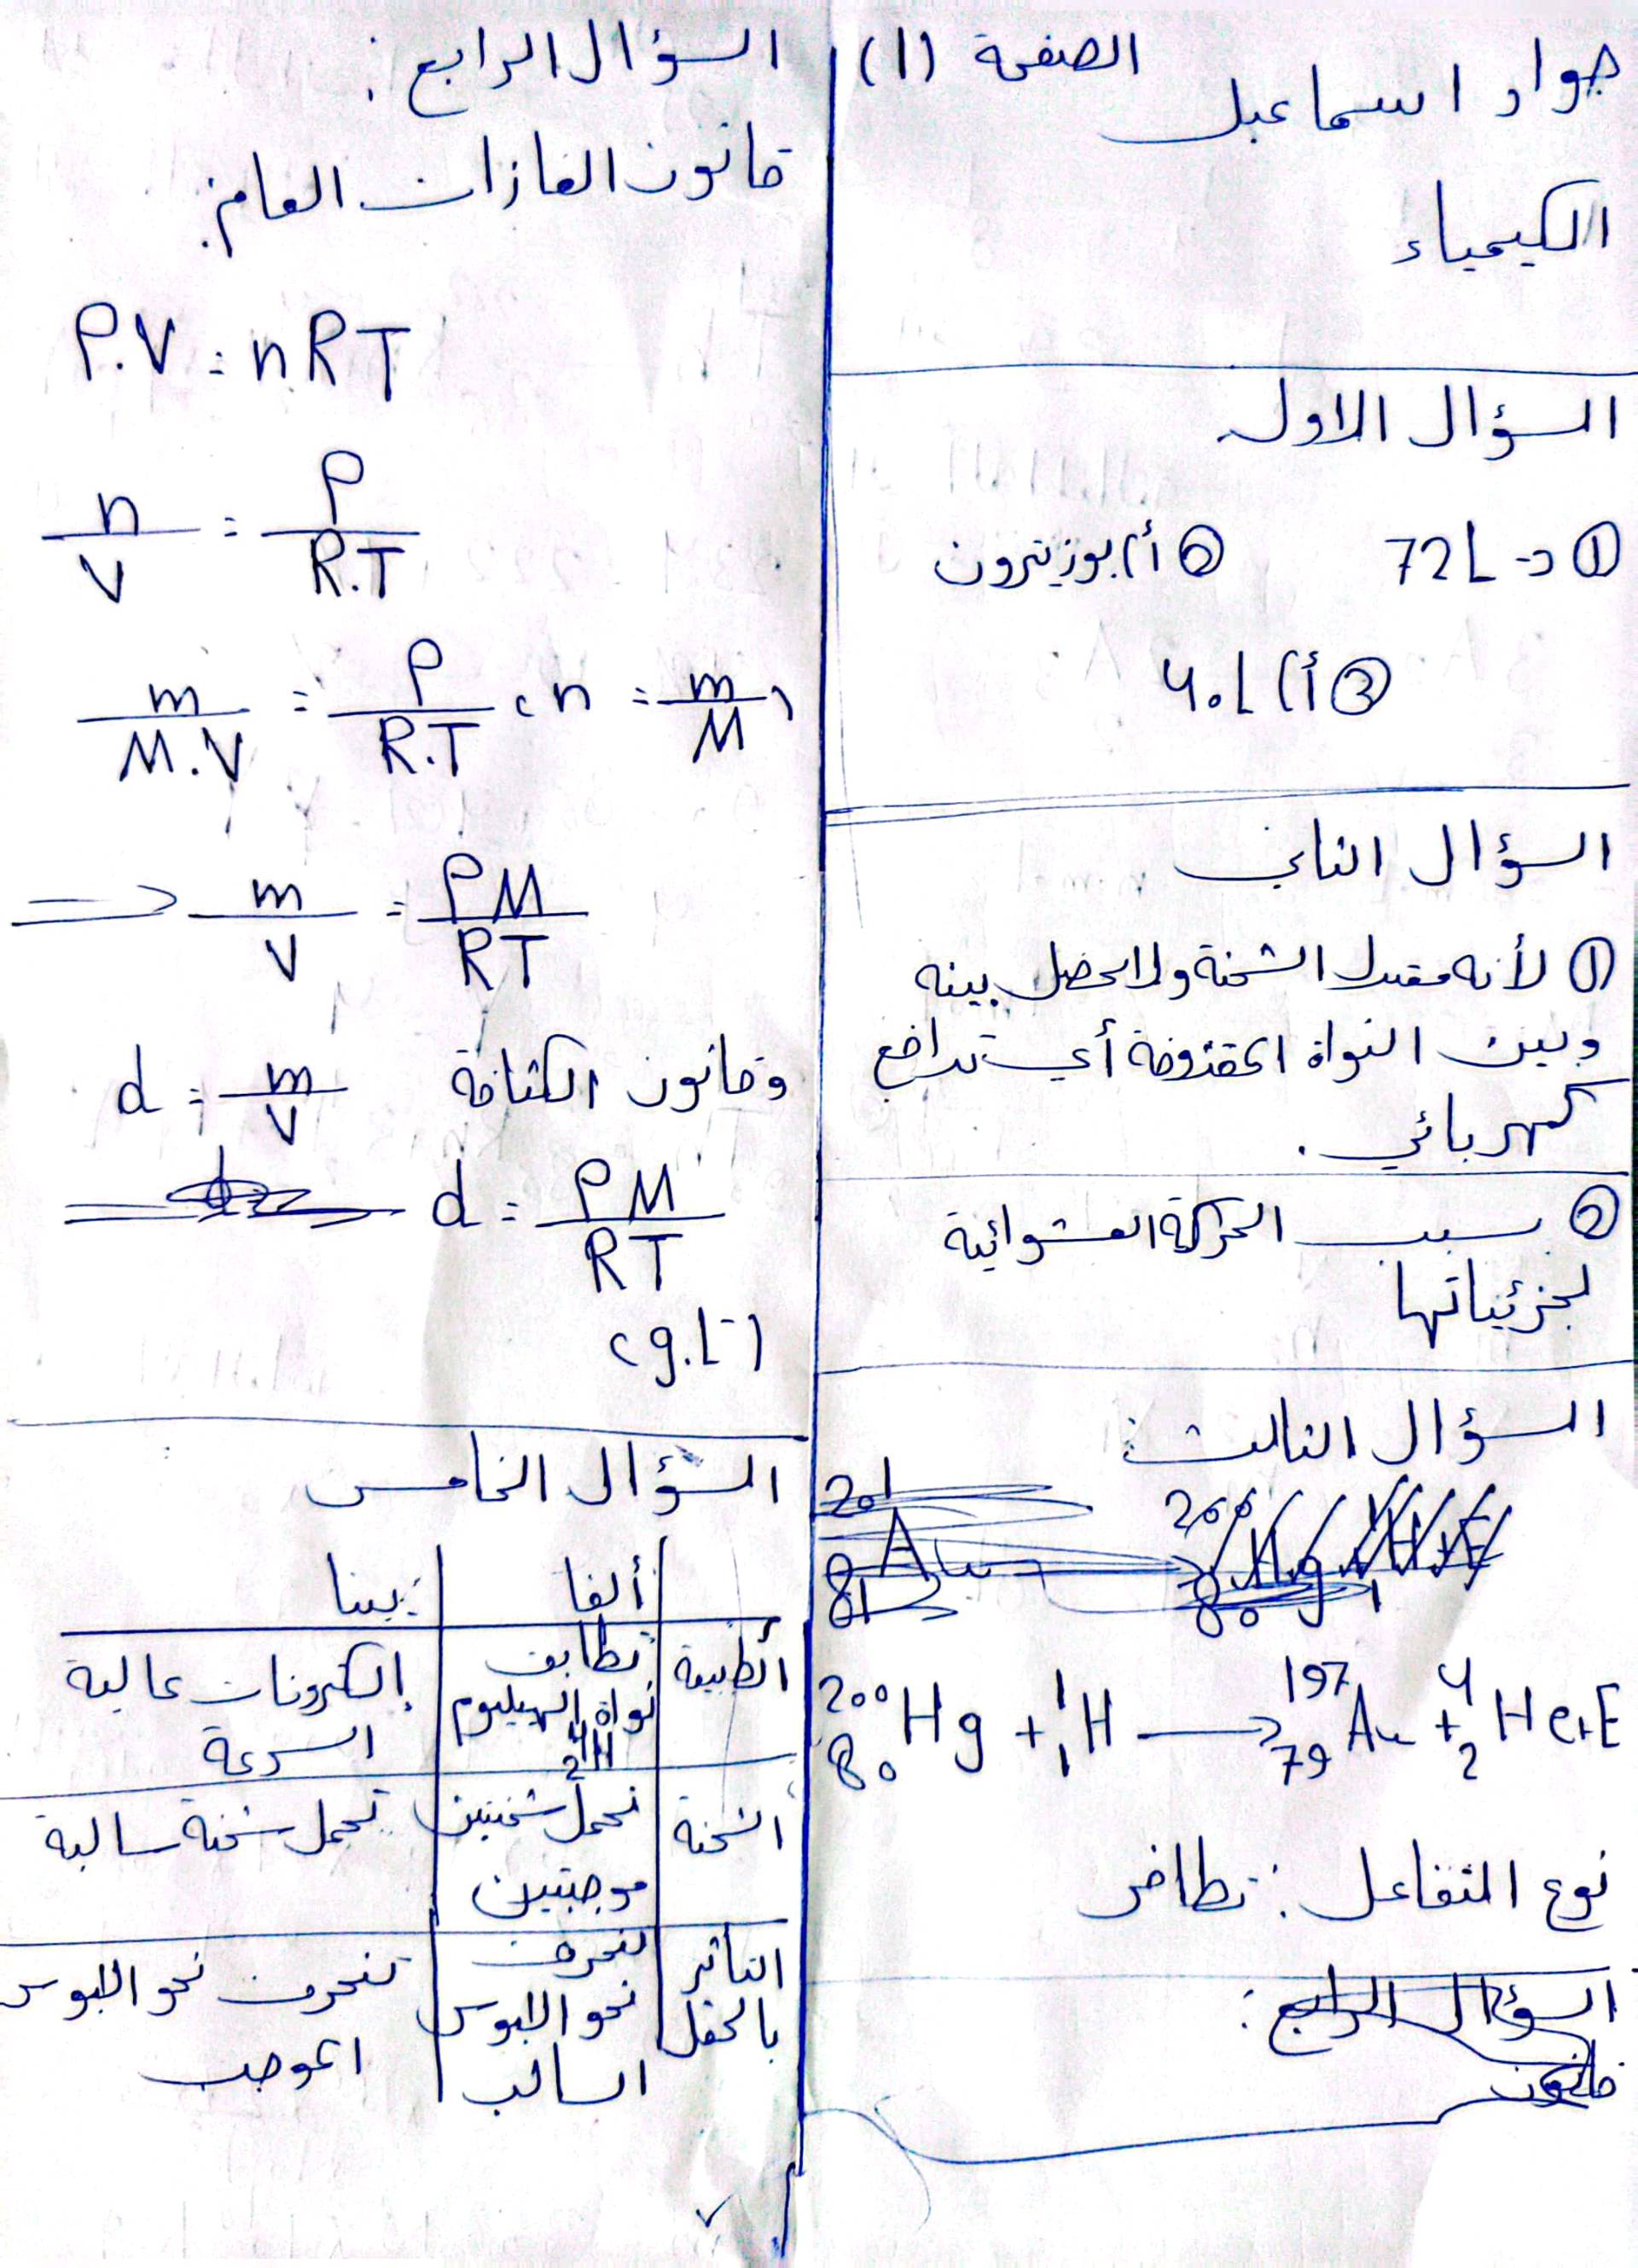 جواد اسماعيل
الصفحة (1)
الكيمياء
السؤال الاول
① د- 72L ② أ) بوزيترون
③ أ) 4.L
السؤال الثاني
① لأنه معتدل الشحنة ولا يحصل بينه
وبين النواة المقذوفة أي تدافع
كهربائي .
② بسبب الحركة العشوائية
لجزئياتها
السؤال الثالث :
²⁰⁰₈₀Hg + ¹₁H → ¹⁹⁷₇₉Au + ⁴₂He+E
نوع التفاعل : تطافر
السؤال الرابع :
قانون
السؤال الرابع :
قانون الغازات العام:
P.V = nRT
n/V = P/R.T
m/M.V = P/R.T ، n = m/M
=> m/V = PM/RT
وقانون الكثافة d = m/V
d = PM/RT
(g.L⁻¹)
السؤال الخامس
ألفا بيتا
الطبيعة تطابق نواة الهيليوم ⁴₂H إلكترونات عالية السرعة
الشحنة تحمل شحنتين موجبتين تحمل شحنة سالبة
التأثر بالحقل تنحرف نحو اللبوس السالب تنحرف نحو اللبوس الموجب